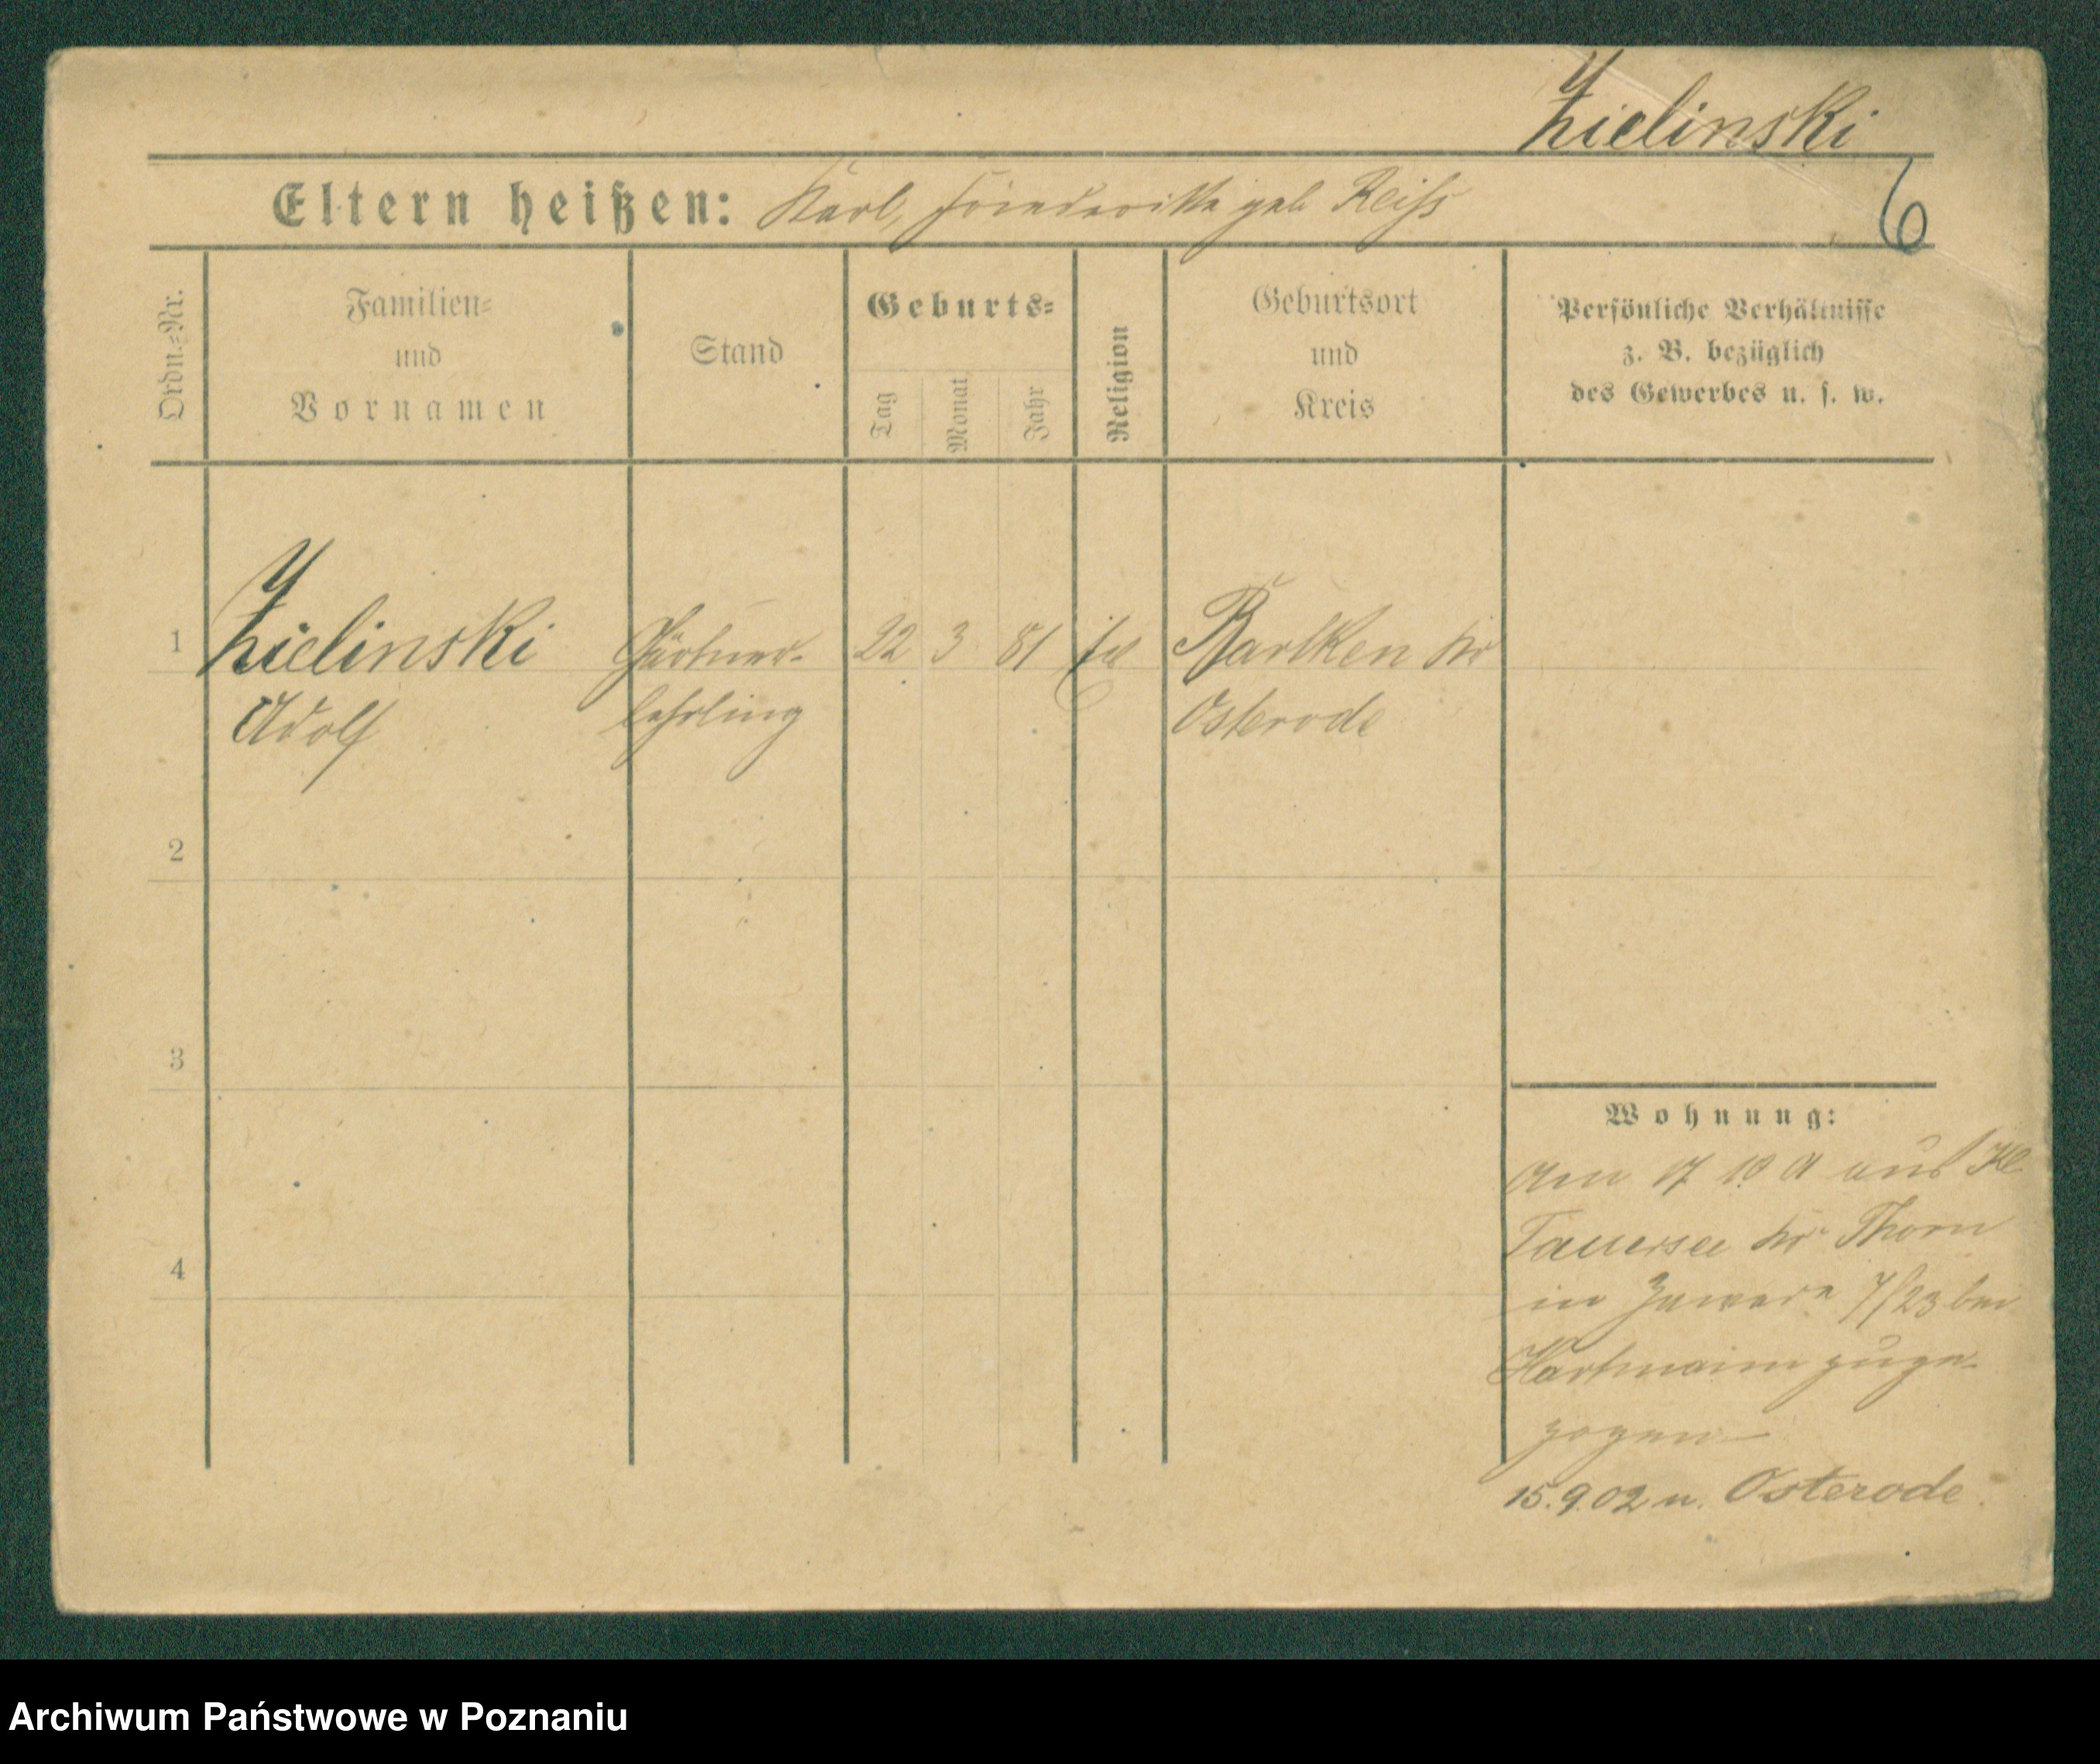 Zielinski
Eltern heißen: Karl, Friederikke geb Reiss
6
Ordn.-Nr.
Familien-
und
Vornamen
Stand
Geburts-
Tag
Monat
Jahr
Religion
Geburtsort
und
Kreis
Persönliche Verhältnisse
z. B. bezüglich
des Gewerbes u. s. w.
1 Zielinski Gärtner- 22 3 81 Barlken Kr
Adolf lehrling Osterode
2
3
4
Wohnung:
Am 17 10 01 aus Kl
Tauersee Kr Thorn
in 7/23 bei
Hartmann zuge-
zogen
15.9.02 n. Osterode
Archiwum Państwowe w Poznaniu